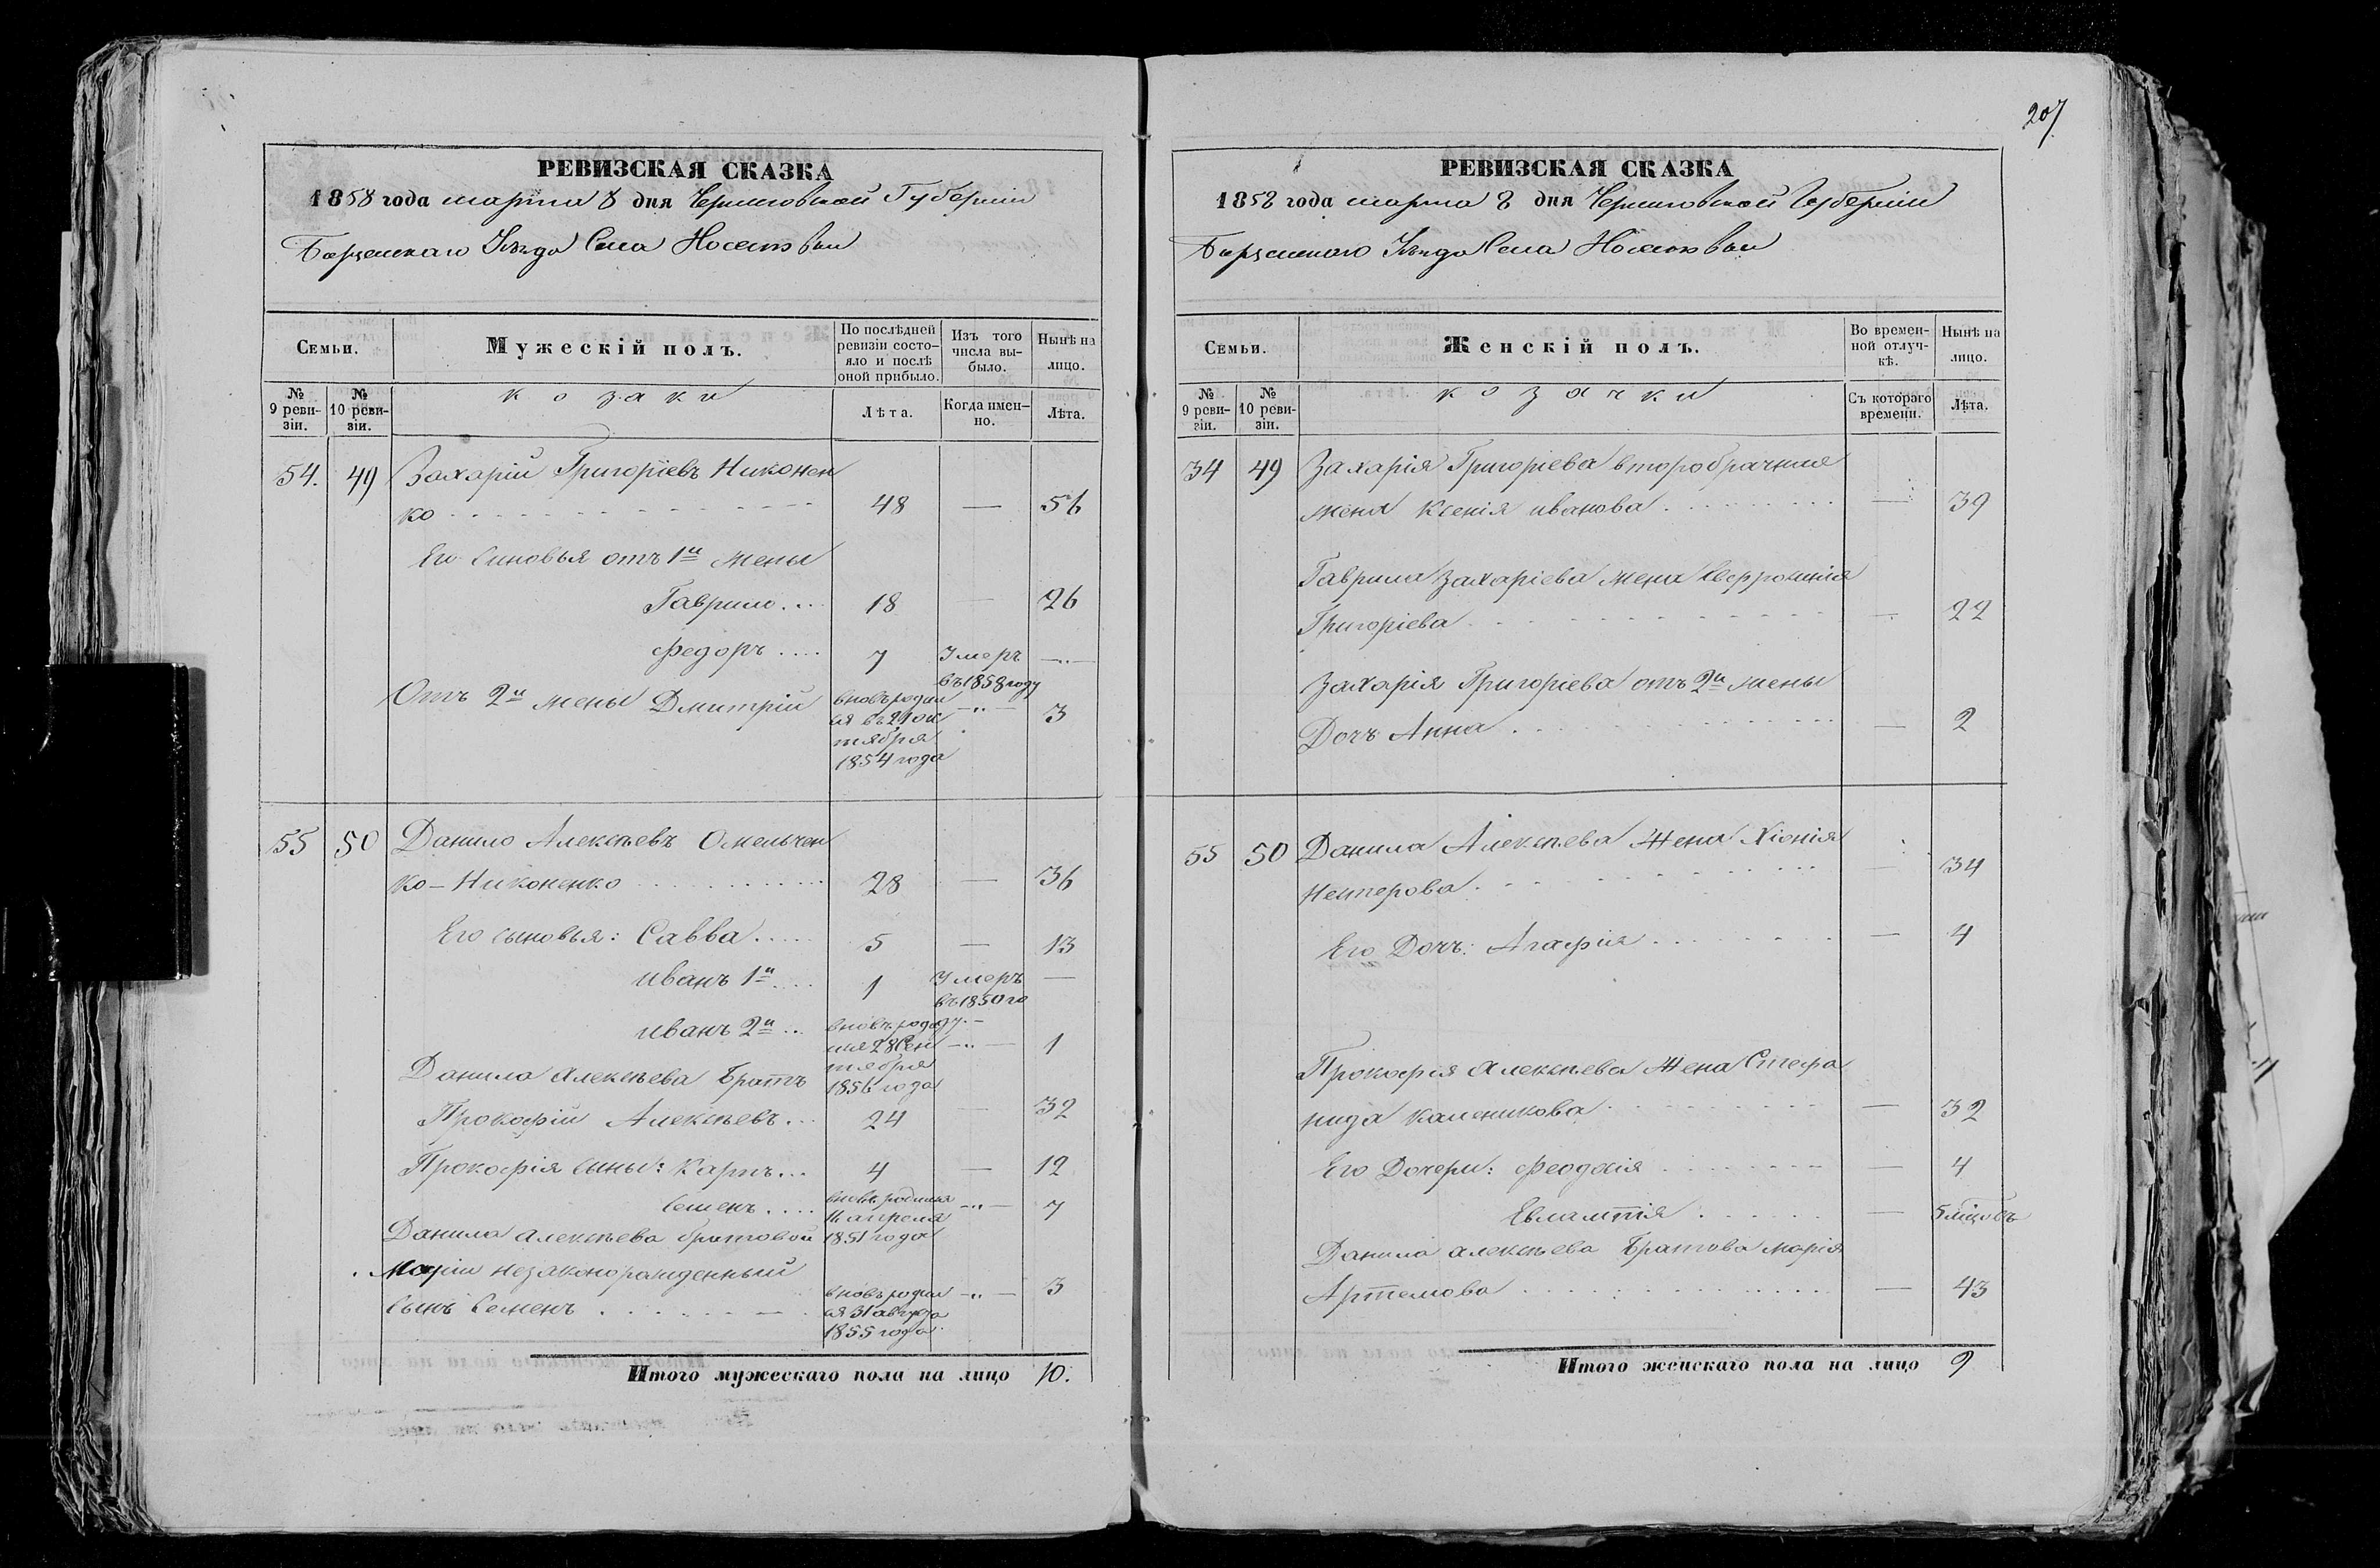 РЕВИЗСКАЯ СКАЗКА
1858 года марта 8 дня Черниговской Губернии
Борзенскаго Уѣзда Села Носелювки
Семьи.
Мужескій полъ.
По послѣдней ревизіи состояло и послѣ оной прибыло.
Изъ того числа выбыло.
Нынѣ на лицо.
№ 9 ревизіи.
№ 10 ревизіи.
козаки
Лѣта.
Когда именно.
Лѣта.
54. 49 Захарій Григоріевъ Никонен
ко 48 — 56
Его Синовья отъ 1й жены
Гаврило.... 18 — 26
Федоръ.... 7 Умеръ —"—
въ 1858 году
Отъ 2й жены Дмитрій вновь родил —"— 3
ся въ 21 ок
тября
1854 года
55 50 Данило Алексѣевъ Омельчен
ко-Никоненко 28 — 36
Его сыновья: Савва..... 5 — 13
иванъ 1й.... 1 Умеръ —
въ 1850 го
ду.—
иванъ 2й... вновь роди
лся 28 Сен —"— 1
тября
1856 года
Данила Алексѣева Братъ
Прокофій Алексѣевъ... 24 — 32
Прокофія Сыны: Карпъ... 4 — 12
Семенъ.... вновь родился —"— 7
11 апреля
1851 года
Данила Алексѣева братовой
Маріи незаконорожденный
Сынъ Семенъ вновь родил —"— 3
ся 31 августа
1855 года
Итого мужескаго пола на лицо 10.
207
РЕВИЗСКАЯ СКАЗКА
1858 года марта 8 дня Черниговской Губернии
Борзенскаго Уѣзда Села Носелювки
Семьи.
Женскій полъ.
Во временной отлучкѣ.
Нынѣ на лицо.
№ 9 ревизіи.
№ 10 ревизіи.
козачки
Съ котораго времени.
Лѣта.
34 49 Захарія Григоріева второбрачная
жена Ксенія иванова — 39
Гаврила Захаріева жена
Григоріева — 22
Захарія Григоріева отъ 2й жены
Дочъ Анна — 2
55 50 Данила Алексѣева Жена Хіонія
Нестерова — 34
Его Дочъ: Агафія — 4
Прокофія Алексѣева Жена Стефа
нида Каленикова — 32
Его Дочери: Феодосія — 4
Евлампія — 5 мѣцовъ
Данила Алексѣева Братова Марія
Артемова — 43
Итого женскаго пола на лицо 9